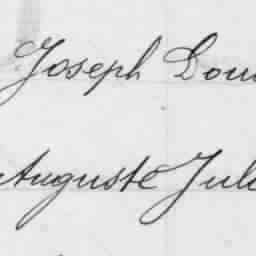 Joseph Lou
Auguste Jule